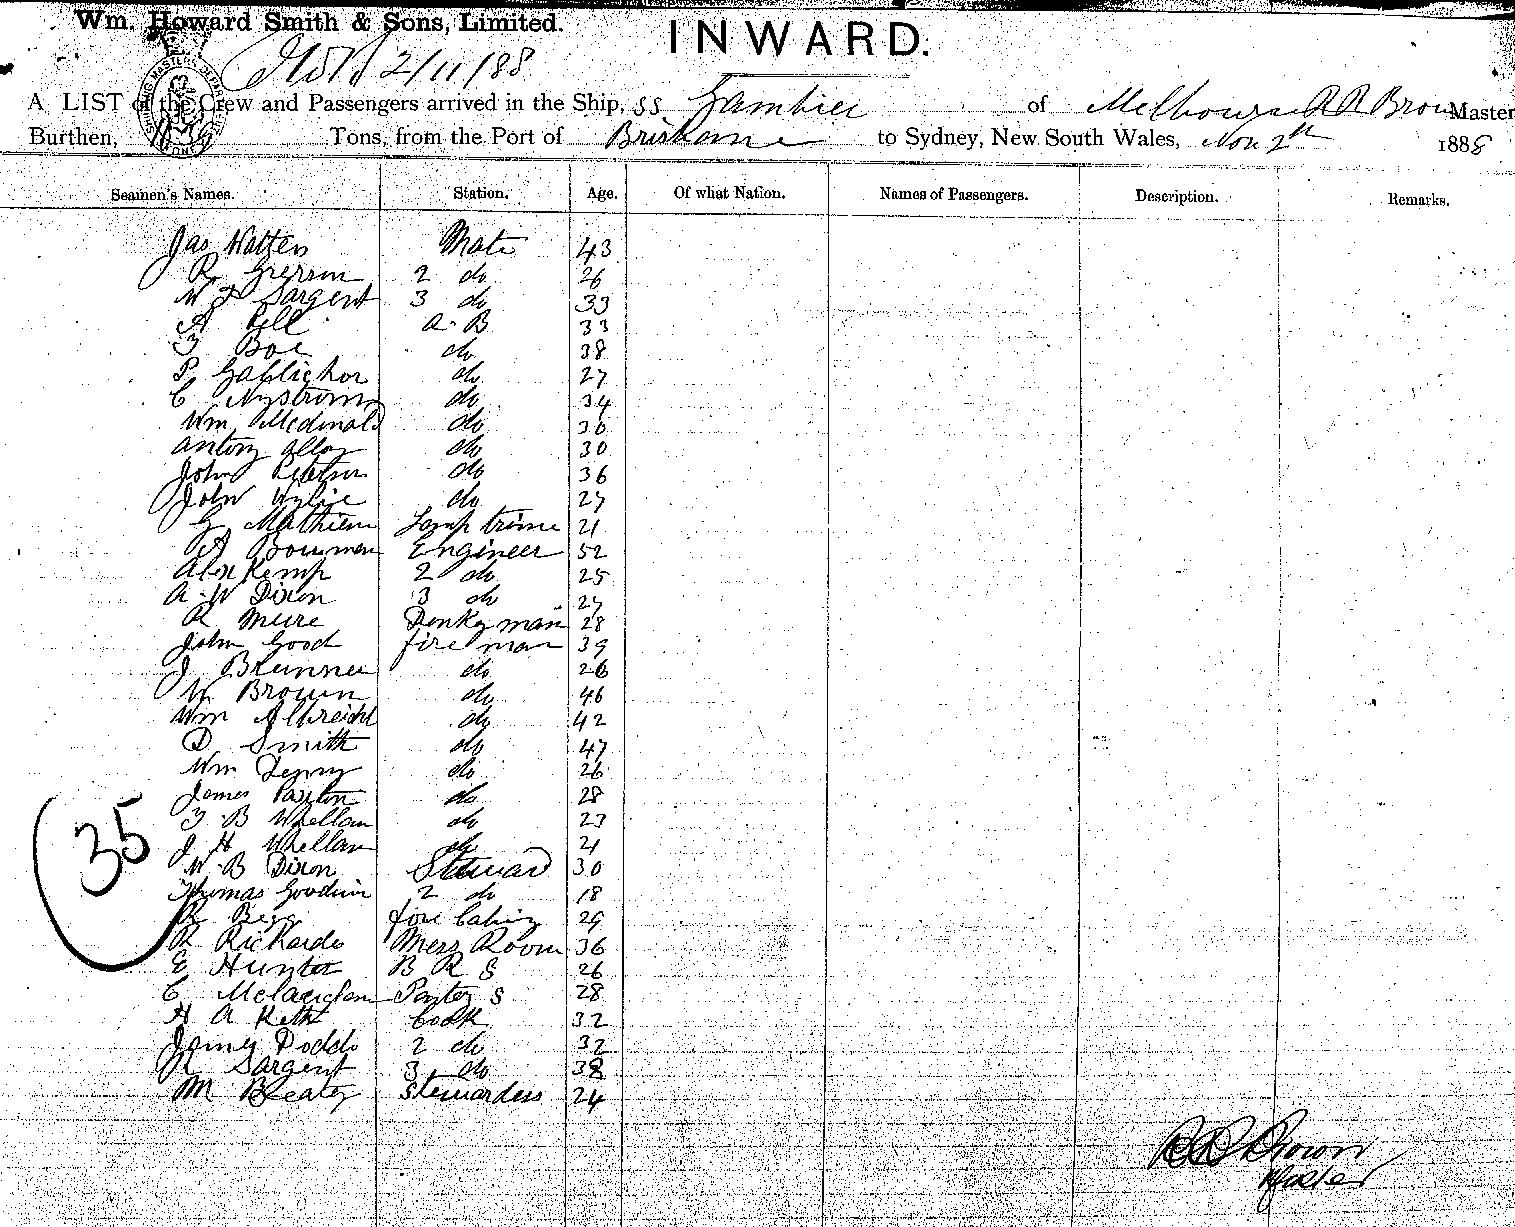 Wm. Howard Smith & Sons, Limited.
INWARD.
2/11/88
A LIST of the Crew and Passengers arrived in the Ship, SS Gambier of Melbourne R R Brown Master
Burthen, Tons, from the Port of Brisbane to Sydney, New South Wales, Nov 2nd 1888
Seamen's Names. Station. Age. Of what Nation. Names of Passengers. Description. Remarks.
Jas Watten Mate 43
R 2 do 26
W Sargent 3 do 33
A Pell A. B 33
Boe do 38
P do 27
C Nystrom do 34
Wm Mcdonald do 36
Antony Alloy do 30
John do 36
John Wylie do 27
G Mathieu Lamp trime 21
A Bowman Engineer 52
Alex Kemp 2 do 25
A. W Dixon 3 do 27
R Meire Donkyman 28
John Good fireman 39
J Brunner do 26
W Brown do 46
Wm Albreicht do 42
D Smith do 47
Wm Denny do 26
James Paxton do 28
B Whellan do 23
J H Whellan do 21
W. B Dixon Steward 30
Thomas Goodwin 2 do 18
R Begg fore Cabin 29
R Richards Mess Room 36
E Hunter B R S 26
C Mclauglan Pantry S 28
H A Keth Cook 32
James Dodds 2 do 32
R Sargent 3 do 38
M Beaty Stewardess 24
35
R R Brown
Master